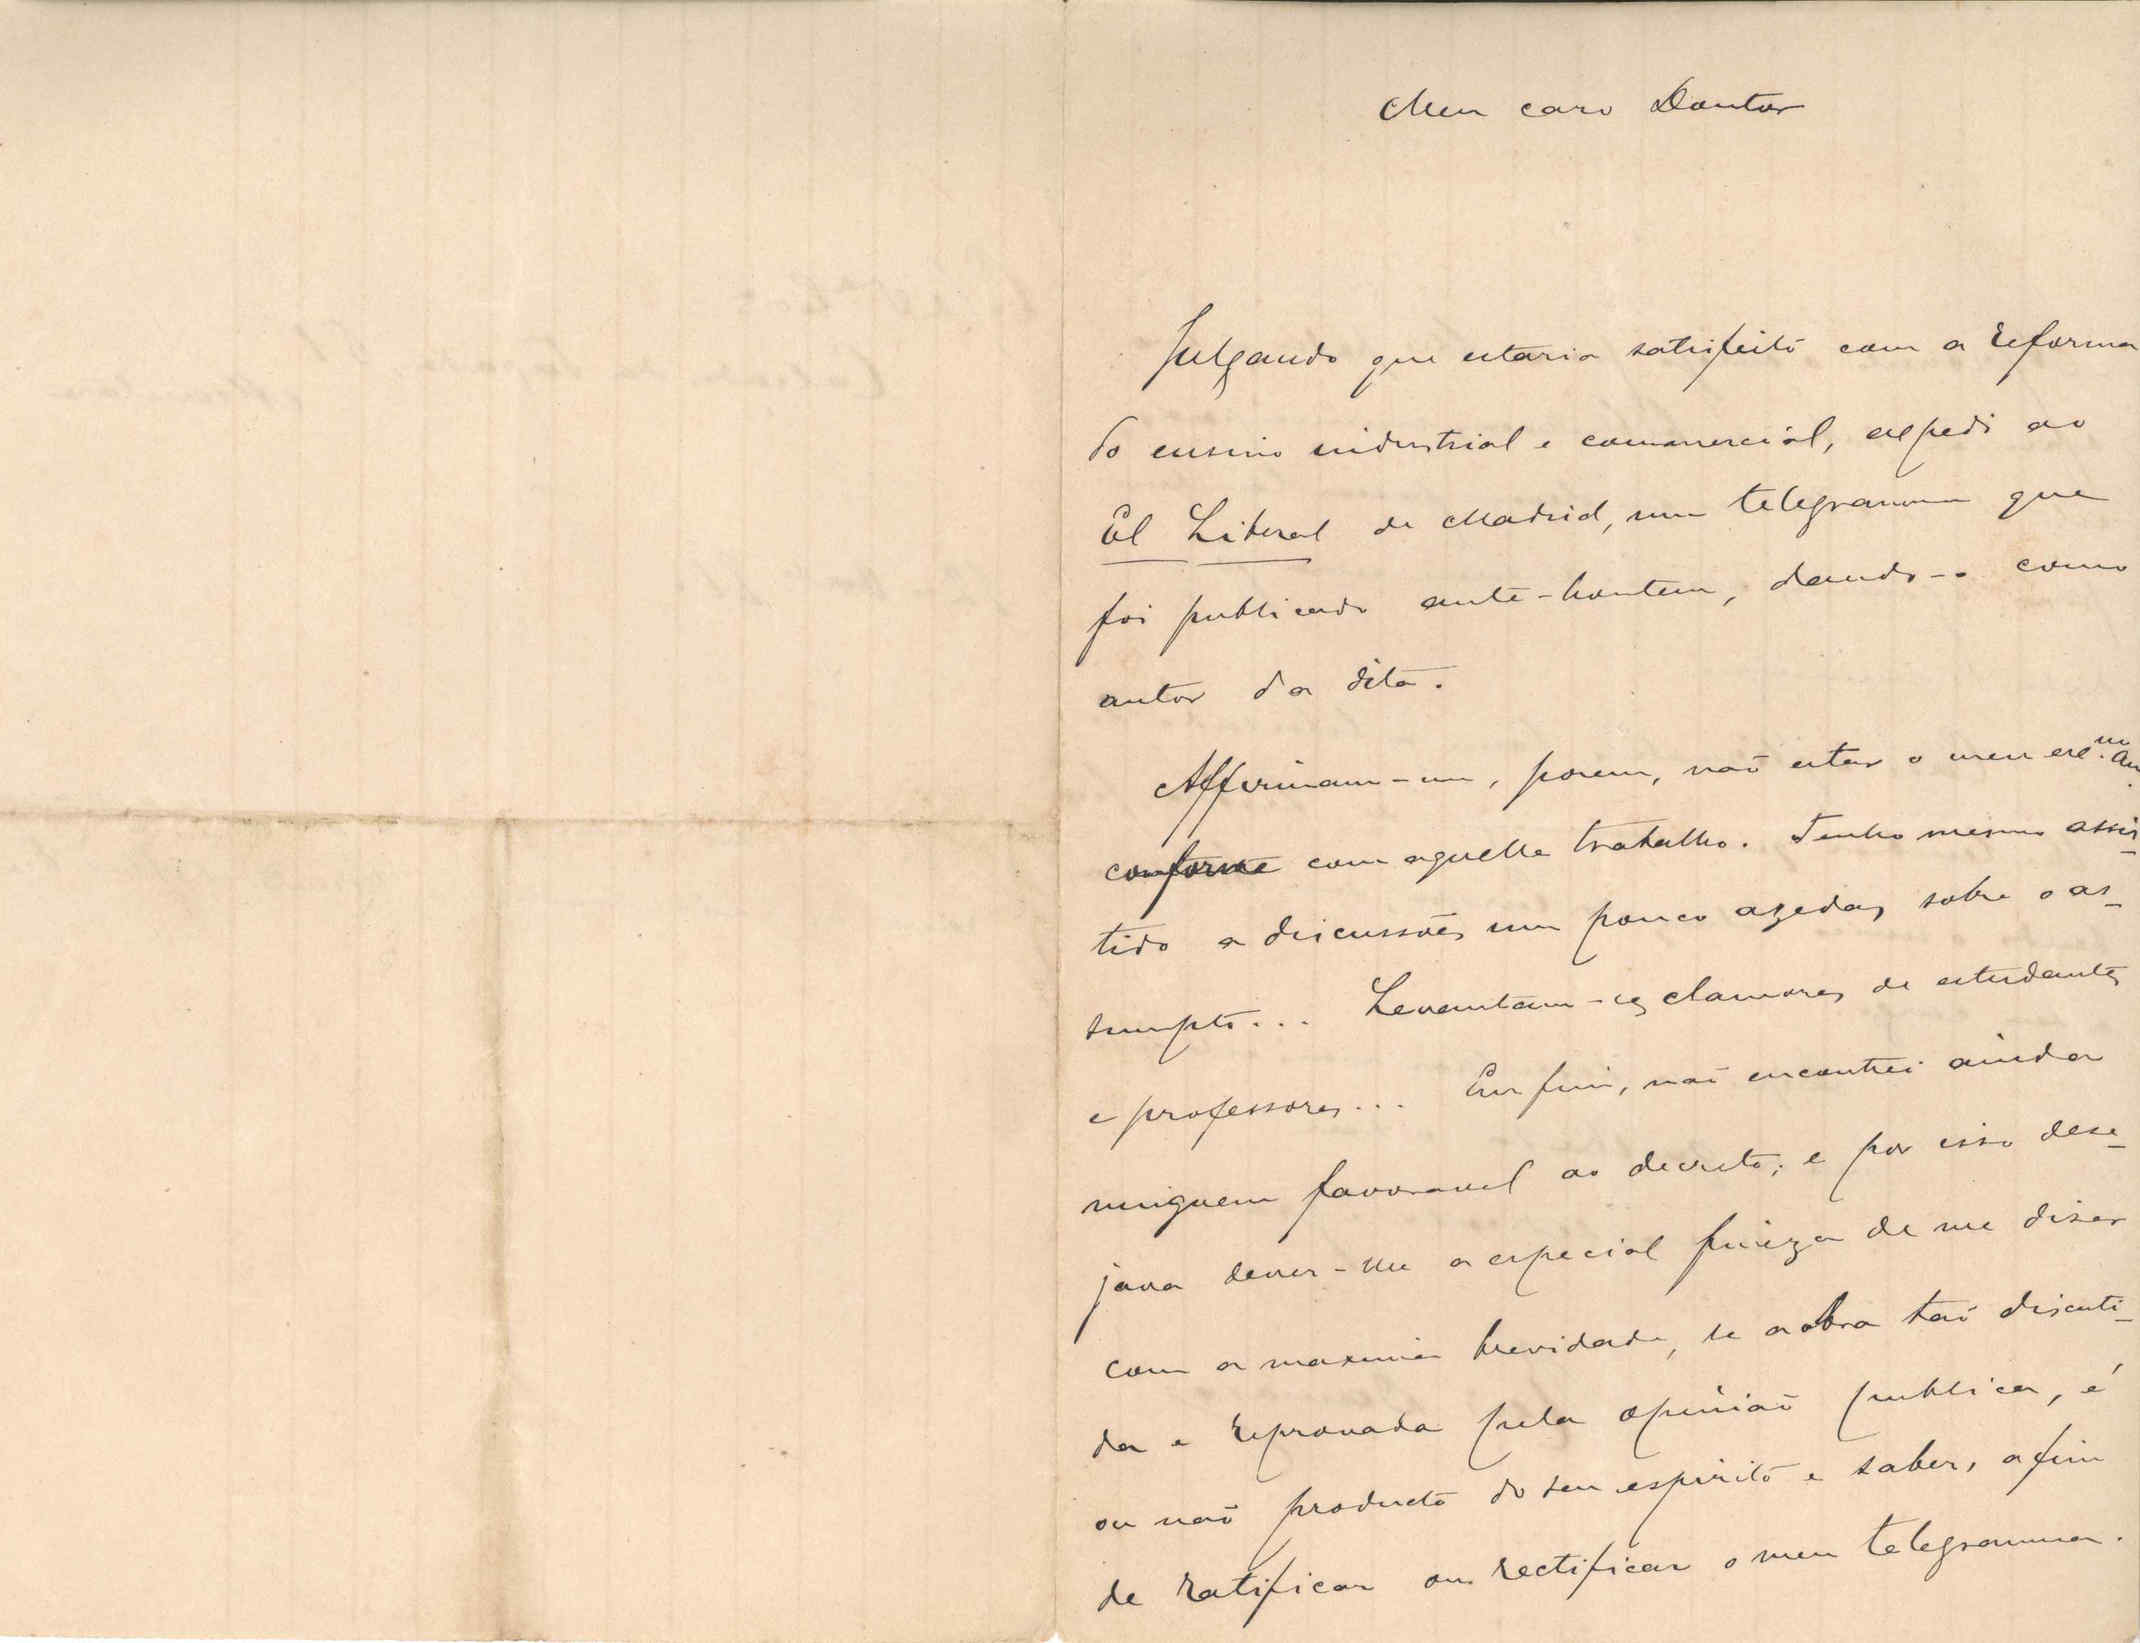 Meu caro Doutor
Julgando que estaria satisfeito com a reforma
do ensino industrial e commercial, expedi ao
El Liberal de Madrid, um telegramma que
foi publicado ante-hontem, dando-o como
autor da dita.
Affirmam-me, porem, não estar o meu exmo. am.
conforme com aquelle trabalho. Tenho mesmo assis-
tido a discussões um pouco azedas sobre o as-
sumpto... Levantam-se clamores de estudantes
e professores... Em fim, não encontrei ainda
ninguem favoravel ao decreto; e por isso dese-
java dever-lhe a especial fineza de me dizer
com a maxima brevidade, se a obra tão discuti-
da e reprovada pela opinião publica, é
ou não producto do seu espirito e saber, afim
de ratificar ou rectificar o meu telegramma.